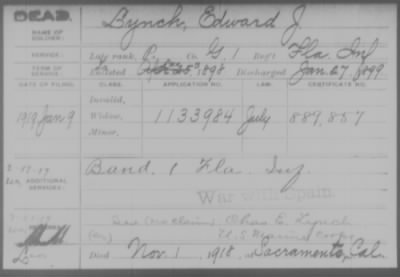 DEAD.
NAME OF SOLDIER: Bynch, Edward J.
SERVICE: Late rank, P, Co. G, 1 Reg't Fla. Inf
TERM OF SERVICE: Enlisted Apr 25, 1898 Discharged Jan. 27, 1899
DATE OF FILING. CLASS. APPLICATION NO. LAW. CERTIFICATE NO.
Invalid,
1919 Jan 9 Widow, 1133984 July 889,857
Minor,
ADDITIONAL SERVICES: Band. 1 Fla. Inf.
War with Spain
Chas. E. Lynch
U.S. Marine Corps
Died Nov. 1, 1918, at Sacramento, Cal.